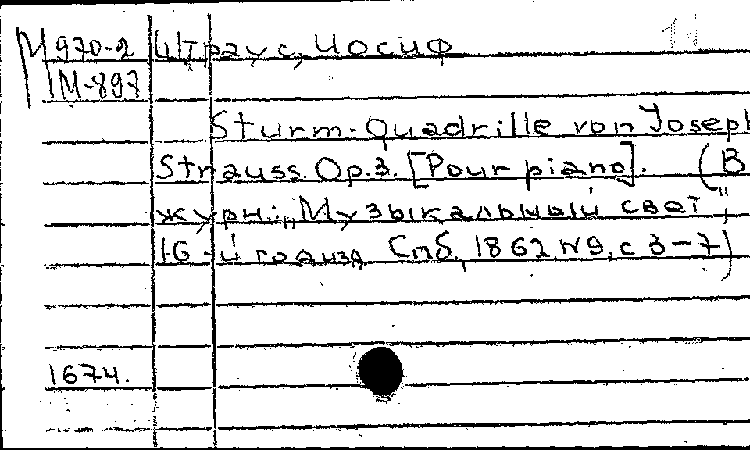 М 970-2 Штраус, Иосиф
IM-897
Sturm-Quadrille von Joseph
Strauss. Op.3. [Pour piano]. (В
журн: „Музыкальный свет",
16-й год изд. Спб., 1862 №9, с 3-7)
1674.